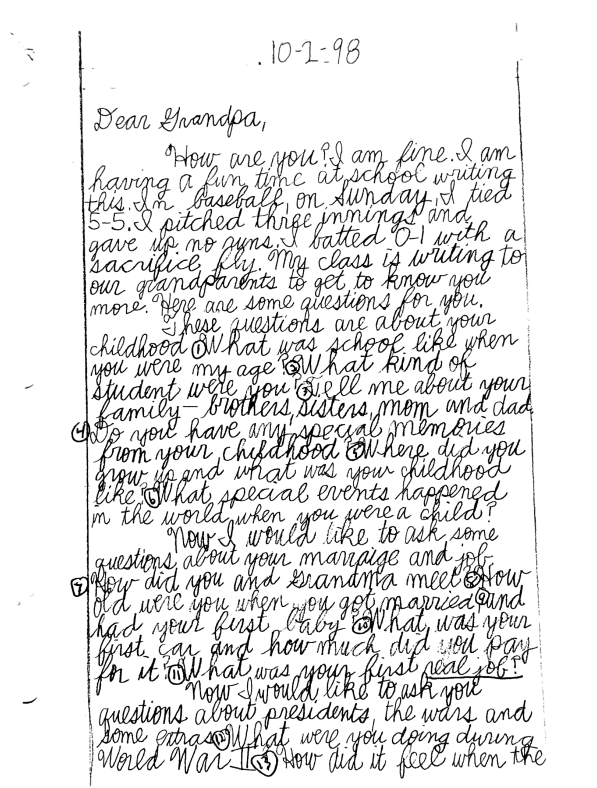 10-2-98
Dear Grandpa,
How are you? I am fine. I am
having a fun time at school writing
this. In baseball, on Sunday, I tied
5-5. I pitched three innings and
gave up no runs. I batted 0-1 with a
sacrifice fly. My class is writing to
our grandparents to get to know you
more. Here are some questions for you.
These questions are about your
childhood ① What was school like when
you were my age? ② What kind of
student were you? ③ Tell me about your
family — brothers, sisters, mom and dad.
④ Do you have any special memories
from your childhood? ⑤ Where did you
grow up and what was your childhood
like? ⑥ What special events happened
in the world when you were a child?
Now I would like to ask some
questions about your marraige and job.
⑦ How did you and Grandma meet? ⑧ How
old were you when you got married ⑨ and
had your first baby? ⑩ What was your
first car and how much did you pay
for it? ⑪ What was your first real job?
Now I would like to ask you
questions about presidents, the wars and
some extras ⑫ What were you doing during
World War II? ⑬ How did it feel when the